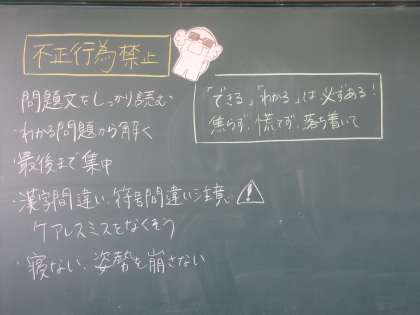 不正行為禁止
問題文をしっかり読む
・わかる問題から解く
・最後まで集中
・漢字間違い、符号間違い注意
ケアレスミスをなくそう
・寝ない、姿勢を崩さない
「できる」「わかる」は必ずある!
焦らず、慌てず、落ち着いて